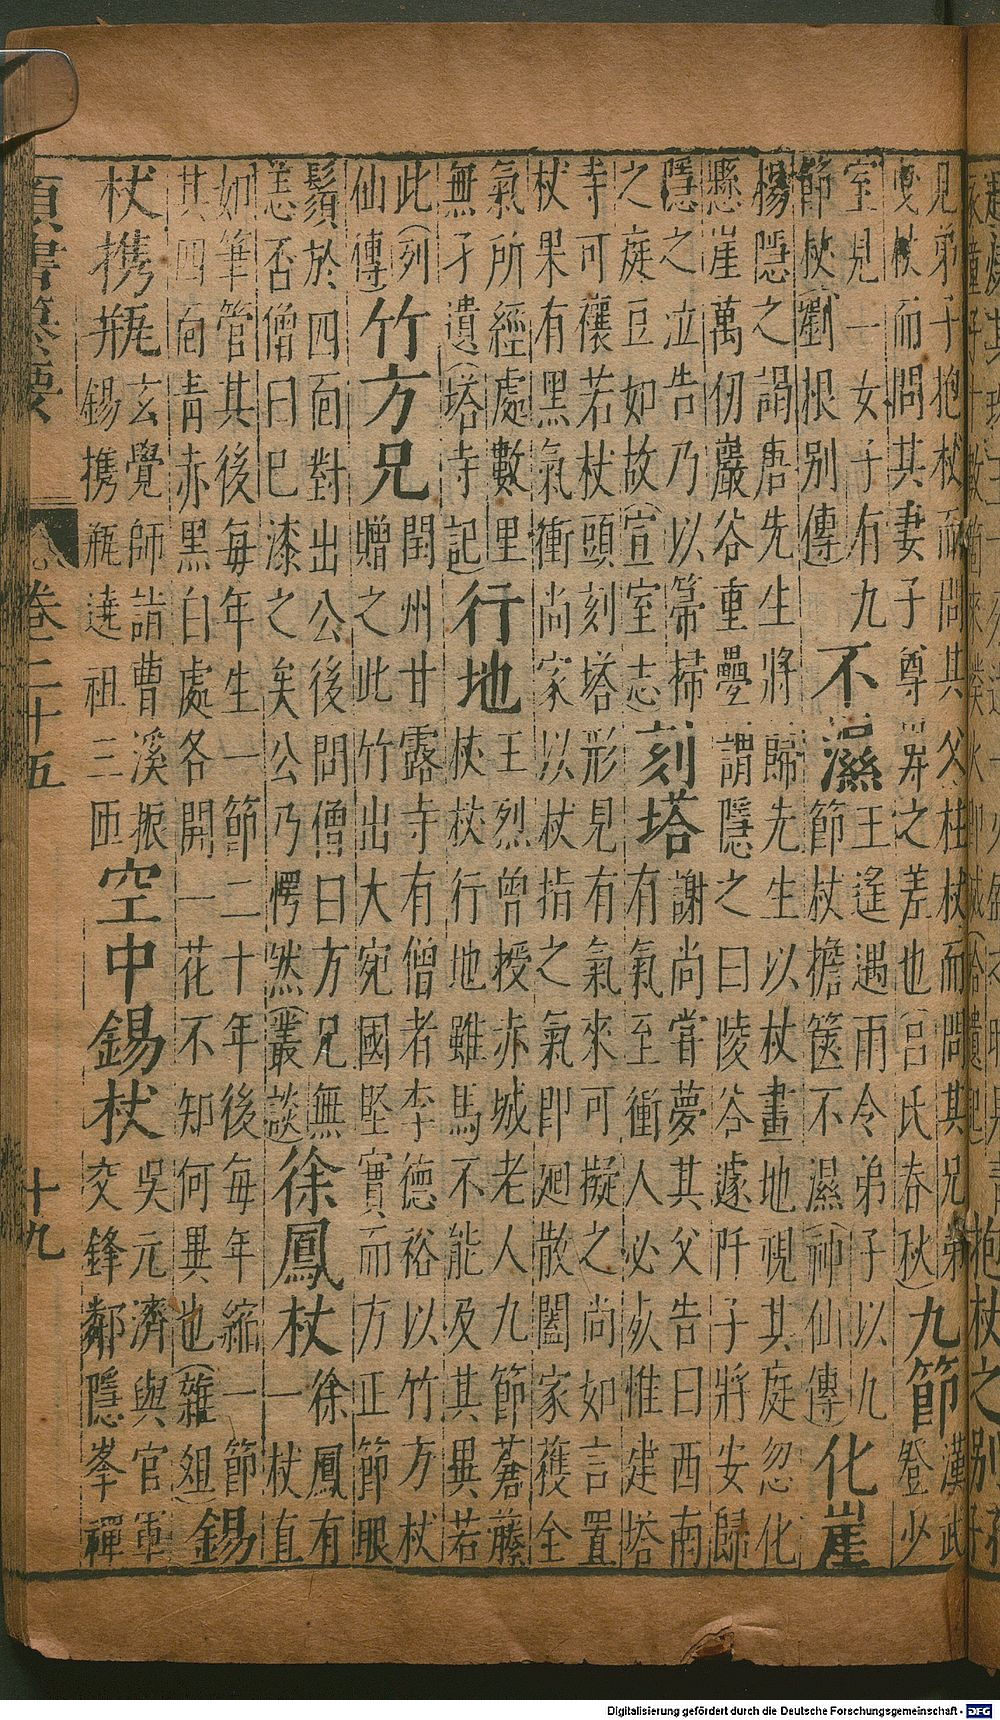 見弟子抱杖而問其父柱杖而問其兄弟
曳杖而問其妻子尊卑之差也(呂氏春秋)
九節
漢武
登少
室見一女子有九
節杖(劉根別傳)
不濕
王遙遇雨令弟子以九
節杖擔篋不濕(神仙傳)
化崖
楊隱之謁唐先生將歸先生以杖畫地視其庭忽化
懸崖萬仞嚴谷重疊謂隱之曰陵谷遽阡子將安歸
隱之泣告乃以箒掃
之庭豆如故(宣室志)
刻塔
謝尚嘗夢其父告曰西南
有氣至衝人必死惟建塔
寺可禳若杖頭刻塔形見有氣來可擬之尚如言置
杖果有黑氣衝尚家以杖指之氣即廻散闔家獲全
氣所經處數里
無孑遺(塔寺記)
行地
王烈曾授赤城老人九節蒼藤
杖杖行地雖馬不能及其異若
此(列
仙傳)
竹方兄
閏州甘露寺有僧者李德裕以竹方杖
贈之此竹出大宛國堅實而方正節眼
鬚於四面對出公後問僧曰方兄無
恙否僧曰已漆之矣公乃愕然(叢談)
徐鳳杖
徐鳳有
一杖直
如筆管其後每年生一節二十年後每年縮一節
其四面青赤黑白處各開一花不知何異也(雜俎)
錫
杖携瓶
玄覺師詣曹溪振
錫携瓶遶祖三匝
空中錫杖
吳元濟與官軍
交鋒鄰隱峯禪
卷二十五
十九
Digitalisierung gefördert durch die Deutsche Forschungsgemeinschaft - DFG